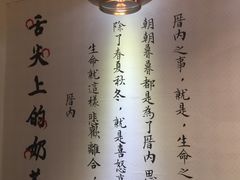 厝内之事，就是，生命之
朝朝暮暮都是為了厝内
除了春夏秋冬，就是喜怒
生命就這樣悲歡離合，
厝内
舌尖上的奶茶